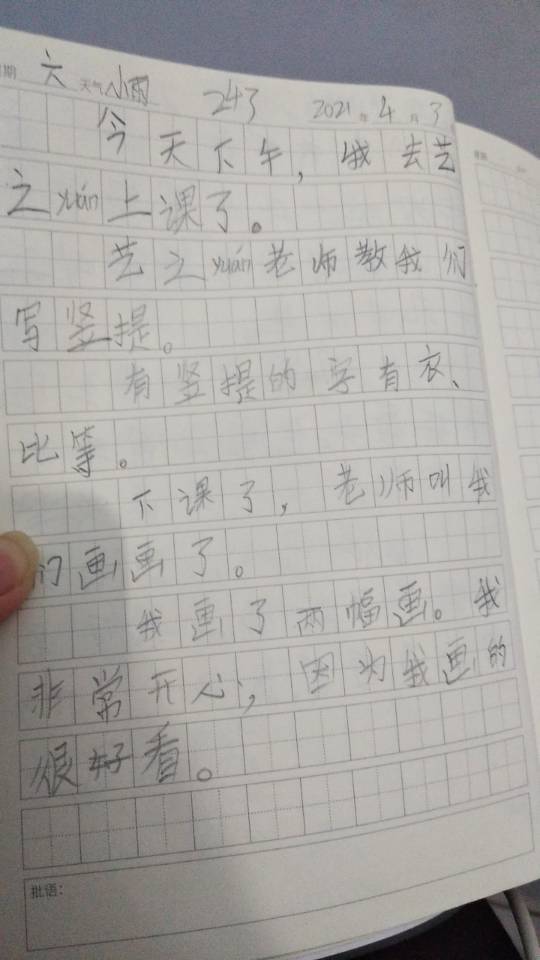 期 六 天气 小雨 243 2021年4月3
今天下午，我去艺
之yuán上课了。
艺之yuán老师教我们
写竖提。
有竖提的字有衣、
比等。
下课了，老师叫我
们画画了。
我画了两幅画。我
非常开心，因为我画的
很好看。
批语：